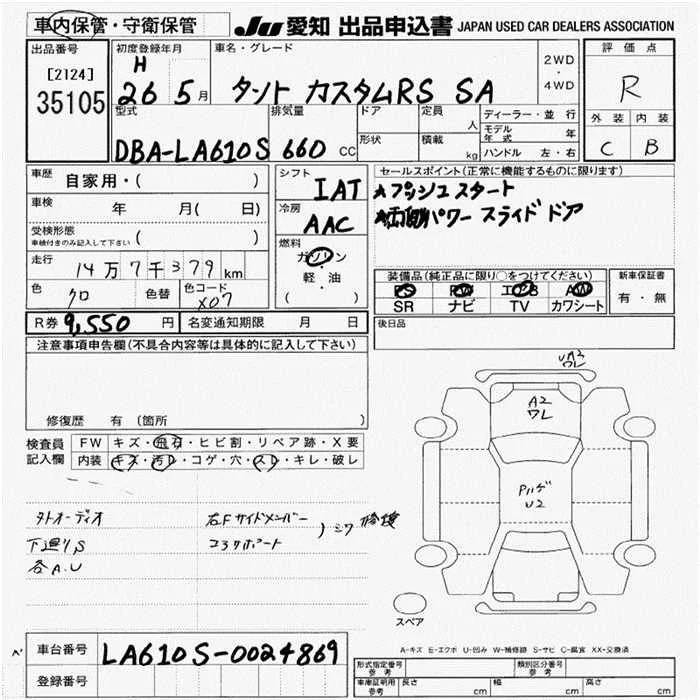 車内保管・守衛保管
JU 愛知 出品申込書 JAPAN USED CAR DEALERS ASSOCIATION
出品番号
[2124]
35105
初度登録年月
H
26 5月
車名・グレード
タント カスタムRS SA
2WD
・
4WD
評価点
R
外装 内装
C B
型式
DBA-LA610S
排気量
660 CC
ドア
形状
定員
人
積載
kg
ディーラー・並行
モデル年式 年
ハンドル 左・右
車歴 自家用・( )
車検 年 月( 日)
受検形態
車検付きのみ記入して下さい ( )
走行 14万7千379km
色 クロ 色替
色コード
X07
シフト
IAT
冷房
AAC
燃料
ガソリン
・
軽・油
( )
セールスポイント(正常に機能するものに限ります)
★プッシュスタート
★両側パワースライドドア
装備品(純正品に限り○をつけてください)
PS PW エアB AW
SR ナビ TV カワシート
新車保証書
有・無
後日品
R券 9,550 円
名変通知期限 月 日
注意事項申告欄(不具合内容等は具体的に記入して下さい)
修復歴 有(箇所 )
検査員
記入欄
FW キズ・飛石・ヒビ割・リペア跡・X要
内装 キズ・汚レ・コゲ・穴・スレ・キレ・破レ
タトオーディオ
下廻りS
各A.U
右Fサイドメンバー
コアサポート
)シワ 修復
UA2
ワレ
A2
ワレ
Pハゲ
U2
スペア
A-キズ E-エクボ U-凹み W-補修跡 S-サビ C-腐食 XX-交換済
車台番号 LA610S-0024869
登録番号
形式指定番号
参考
類別区分番号
参考
車庫証明用
参考
長さ cm
幅 cm
高さ cm